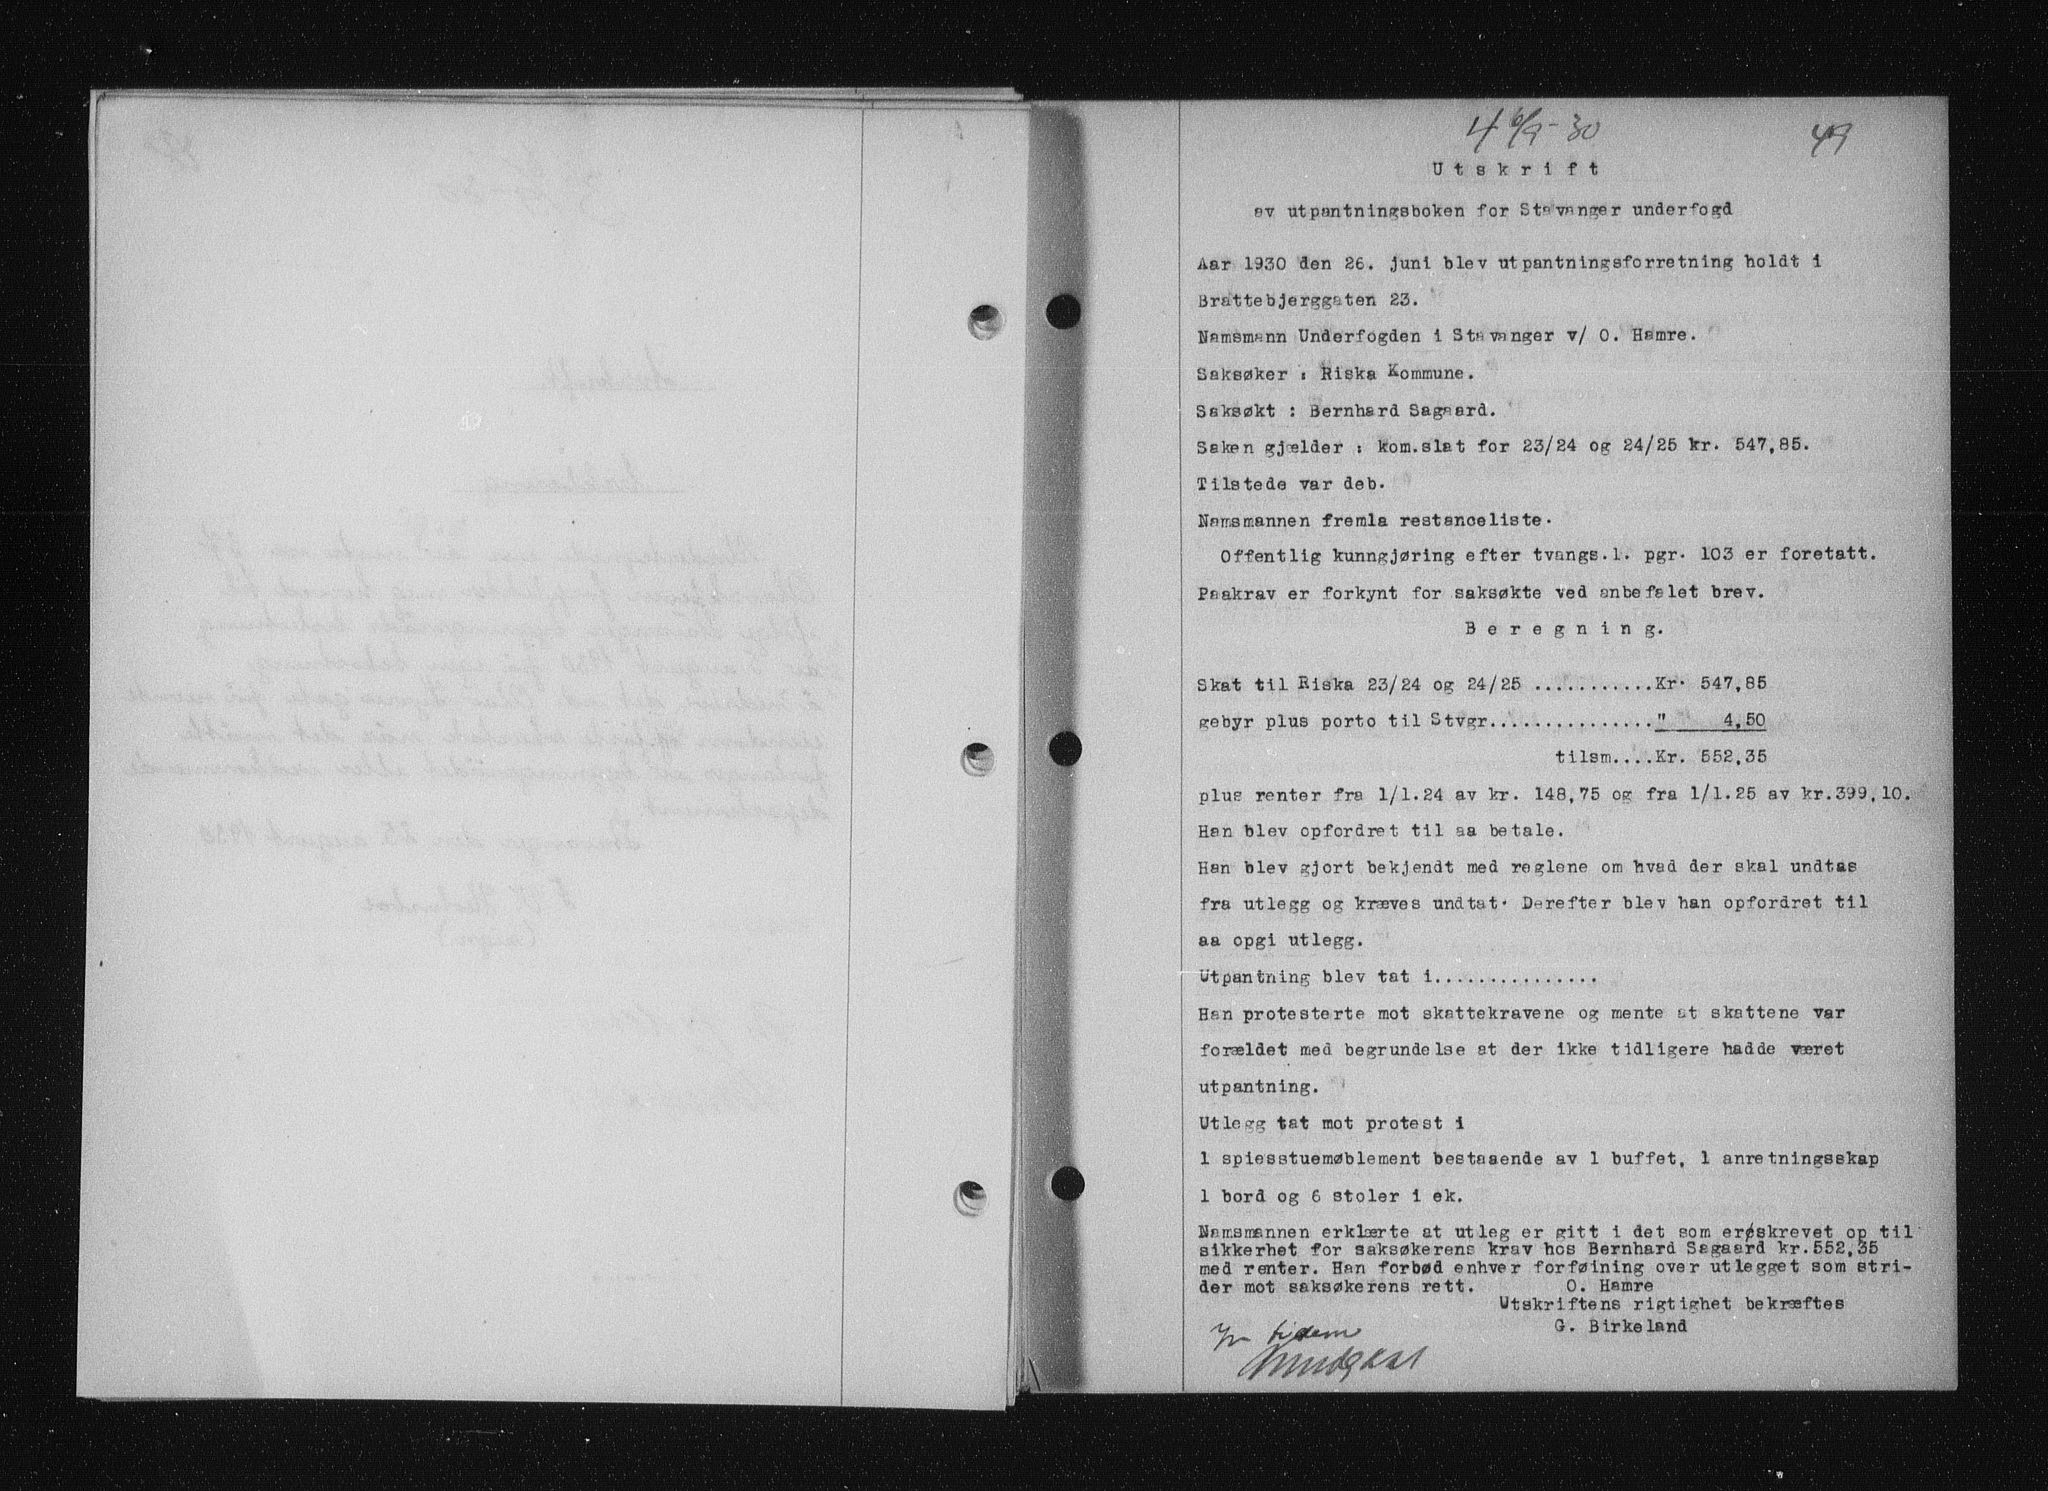 4 6/9-30
49
Utskrift
av utpantningsboken for Stavanger underfogd
Aar 1930 den 26. juni blev utpantningsforretning holdt i
Brattebjerggaten 23.
Namsmann Underfogden i Stavanger v/ O. Hamre.
Saksøker : Riska Kommune.
Saksøkt : Bernhard Sagaard.
Saken gjælder : kom.slat for 23/24 og 24/25 kr. 547,85.
Tilstede var deb.
Namsmannen fremla restanceliste.
Offentlig kunngjøring efter tvangs.l. pgr. 103 er foretatt.
Paakrav er forkynt for saksøkte ved anbefalet brev.
Beregning.
Skat til Riska 23/24 og 24/25 ...........Kr. 547,85
gebyr plus porto til Stvgr................" 4,50
tilsm....Kr. 552,35
plus renter fra 1/1.24 av kr. 148,75 og fra 1/1.25 av kr.399,10.
Han blev opfordret til aa betale.
Han blev gjort bekjendt med reglene om hvad der skal undtas
fra utlegg og kræves undtat. Derefter blev han opfordret til
aa opgi utlegg.
Utpantning blev tat i...............
Han protesterte mot skattekravene og mente at skattene var
forældet med begrundelse at der ikke tidligere hadde været
utpantning.
Utlegg tat mot protest i
1 spiesstuemøblement bestaaende av 1 buffet, 1 anretningsskap
1 bord og 6 stoler i ek.
Namsmannen erklærte at utleg er gitt i det som erøskrevet op til
sikkerhet for saksøkerens krav hos Bernhard Sagaard kr.552,35
med renter. Han forbød enhver forføining over utlegget som stri-
der mot saksøkerens rett. O. Hamre
Utskriftens rigtighet bekræftes
G. Birkeland